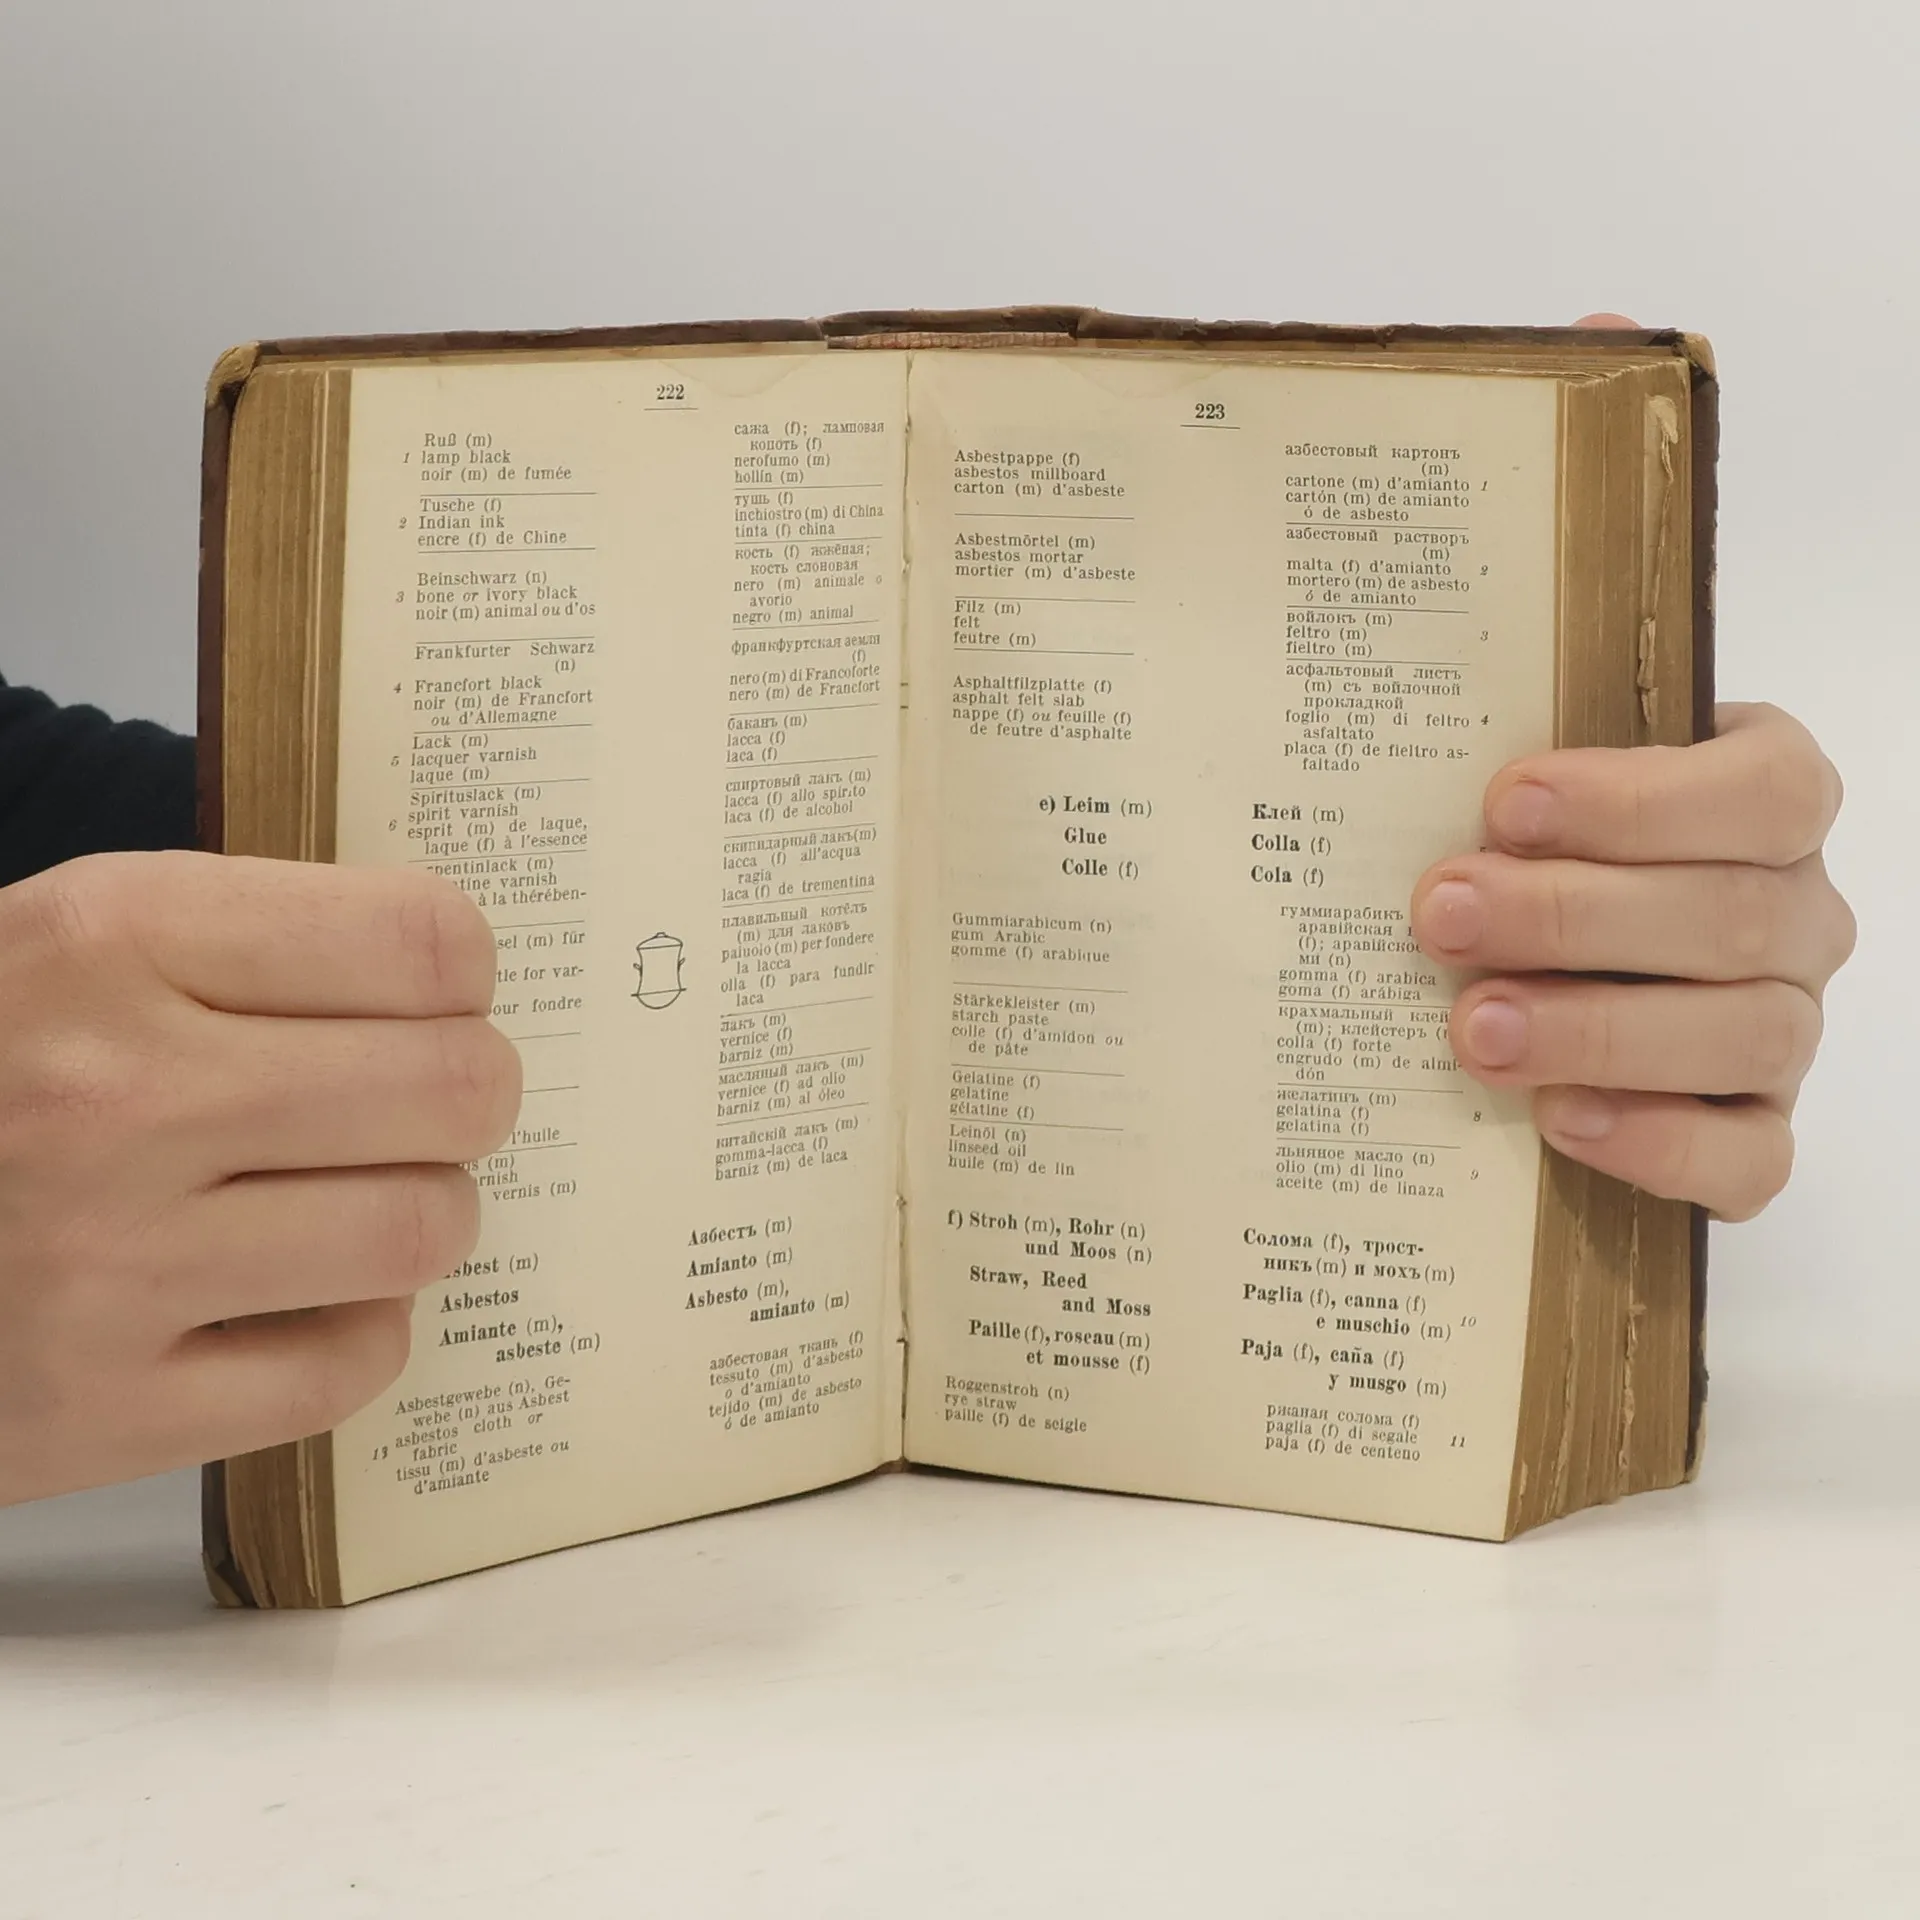 222
Ruß (m)
1 lamp black
noir (m) de fumée
Tusche (f)
2 Indian ink
encre (f) de Chine
Beinschwarz (n)
3 bone or ivory black
noir (m) animal ou d'os
Frankfurter Schwarz
(n)
4 Francfort black
noir (m) de Francfort
ou d'Allemagne
Lack (m)
5 lacquer varnish
laque (m)
Spirituslack (m)
spirit varnish
6 esprit (m) de laque,
laque (f) à l'essence
pentinlack (m)
tine varnish
à la thérében-
sel (m) für
tle for var-
our fondre
l'huile
is (m)
rnish
vernis (m)
sbest (m)
Asbestos
Amiante (m),
asbeste (m)
Asbestgewebe (n), Ge-
webe (n) aus Asbest
13 asbestos cloth or
fabric
tissu (m) d'asbeste ou
d'amiante
сажа (f); ламповая
копоть (f)
nerofumo (m)
hollín (m)
тушь (f)
inchiostro (m) di China
tinta (f) china
кость (f) жжёная;
кость слоновая
nero (m) animale o
avorio
negro (m) animal
франкфуртская земля
(f)
nero (m) di Francoforte
nero (m) de Francfort
баканъ (m)
lacca (f)
laca (f)
спиртовый лакъ (m)
lacca (f) allo spirito
laca (f) de alcohol
скипидарный лакъ (m)
lacca (f) all'acqua
ragia
laca (f) de trementina
плавильный котёлъ
(m) для лаковъ
paiuolo (m) per fondere
la lacca
olla (f) para fundir
laca
лакъ (m)
vernice (f)
barniz (m)
масляный лакъ (m)
vernice (f) ad olio
barniz (m) al óleo
китайскій лакъ (m)
gomma-lacca (f)
barniz (m) de laca
Азбестъ (m)
Amianto (m)
Asbesto (m),
amianto (m)
азбестовая ткань (f)
tessuto (m) d'asbesto
o d'amianto
tejido (m) de asbesto
ó de amianto
223
Asbestpappe (f)
asbestos millboard
carton (m) d'asbeste
Asbestmörtel (m)
asbestos mortar
mortier (m) d'asbeste
Filz (m)
felt
feutre (m)
Asphaltfilzplatte (f)
asphalt felt slab
nappe (f) ou feuille (f)
de feutre d'asphalte
e) Leim (m)
Glue
Colle (f)
Gummiarabicum (n)
gum Arabic
gomme (f) arabique
Stärkekleister (m)
starch paste
colle (f) d'amidon ou
de pâte
Gelatine (f)
gelatine
gélatine (f)
Leinöl (n)
linseed oil
huile (m) de lin
f) Stroh (m), Rohr (n)
und Moos (n)
Straw, Reed
and Moss
Paille (f), roseau (m)
et mousse (f)
Roggenstroh (n)
rye straw
paille (f) de seigle
азбестовый картонъ
(m)
cartone (m) d'amianto 1
cartón (m) de amianto
ó de asbesto
азбестовый растворъ
(m)
malta (f) d'amianto 2
mortero (m) de asbesto
ó de amianto
войлокъ (m)
feltro (m) 3
fieltro (m)
асфальтовый листъ
(m) съ войлочной
прокладкой
foglio (m) di feltro 4
asfaltato
placa (f) de fieltro as-
faltado
Клей (m)
Colla (f)
Cola (f)
гуммиарабикъ
аравійская
(f); аравійско
ми (n)
gomma (f) arabica
goma (f) arábiga
крахмальный клей
(m); клейстеръ
colla (f) forte
engrudo (m) de almi-
dón
желатинъ (m)
gelatina (f) 8
gelatina (f)
льняное масло (n)
olio (m) di lino 9
aceite (m) de linaza
Солома (f), трост-
никъ (m) и мохъ (m)
Paglia (f), canna (f)
e muschio (m) 10
Paja (f), caña (f)
y musgo (m)
ржаная солома (f)
paglia (f) di segale 11
paja (f) de centeno